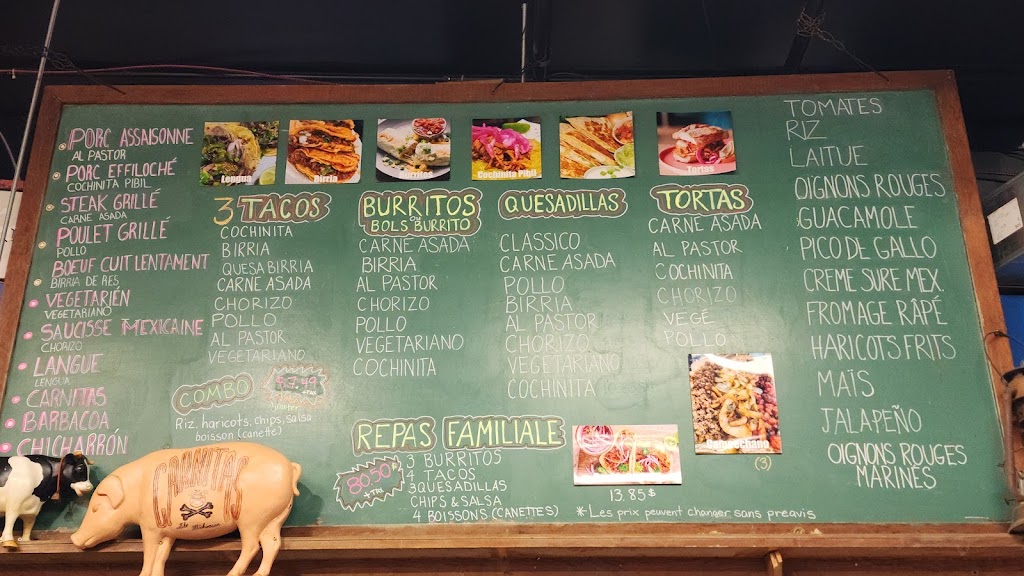 PORC ASSAISONNE
AL PASTOR
PORC EFFILOCHÉ
COCHINITA PIBIL
STEAK GRILLÉ
CARNE ASADA
POULET GRILLÉ
POLLO
BOEUF CUIT LENTAMENT
BIRRIA DE RES
VEGETARIEN
VEGETARIANO
SAUCISSE MEXICAINE
CHORIZO
LANGUE
LENGUA
CARNITAS
BARBACOA
CHICHARRÓN
Lengua
Birria
Burritos
Cochinita Pibil
Tortas
3 TACOS
COCHINITA
BIRRIA
QUESABIRRIA
CARNE ASADA
CHORIZO
POLLO
AL PASTOR
VEGETARIANO
COMBO
Riz, haricots, chips, salsa
boisson (canette)
BURRITOS
OU
BOLS BURRITO
CARNE ASADA
BIRRIA
AL PASTOR
CHORIZO
POLLO
VEGETARIANO
COCHINITA
QUESADILLAS
CLASSICO
CARNE ASADA
POLLO
BIRRIA
AL PASTOR
CHORIZO
VEGETARIANO
COCHINITA
TORTAS
CARNE ASADA
AL PASTOR
COCHINITA
CHORIZO
VEGÉ
POLLO
REPAS FAMILIALE
3 BURRITOS
4 TACOS
3 QUESADILLAS
CHIPS & SALSA
4 BOISSONS (CANETTES)
80.50$
+TX
13.85$
(3)
*Les prix peuvent changer sans preavis
TOMATES
RIZ
LAITUE
OIGNONS ROUGES
GUACAMOLE
PICO DE GALLO
CREME SURE MEX.
FROMAGE RÂPÉ
HARICOTS FRITS
MAÏS
JALAPEÑO
OIGNONS ROUGES
MARINÉS
CARNITAS